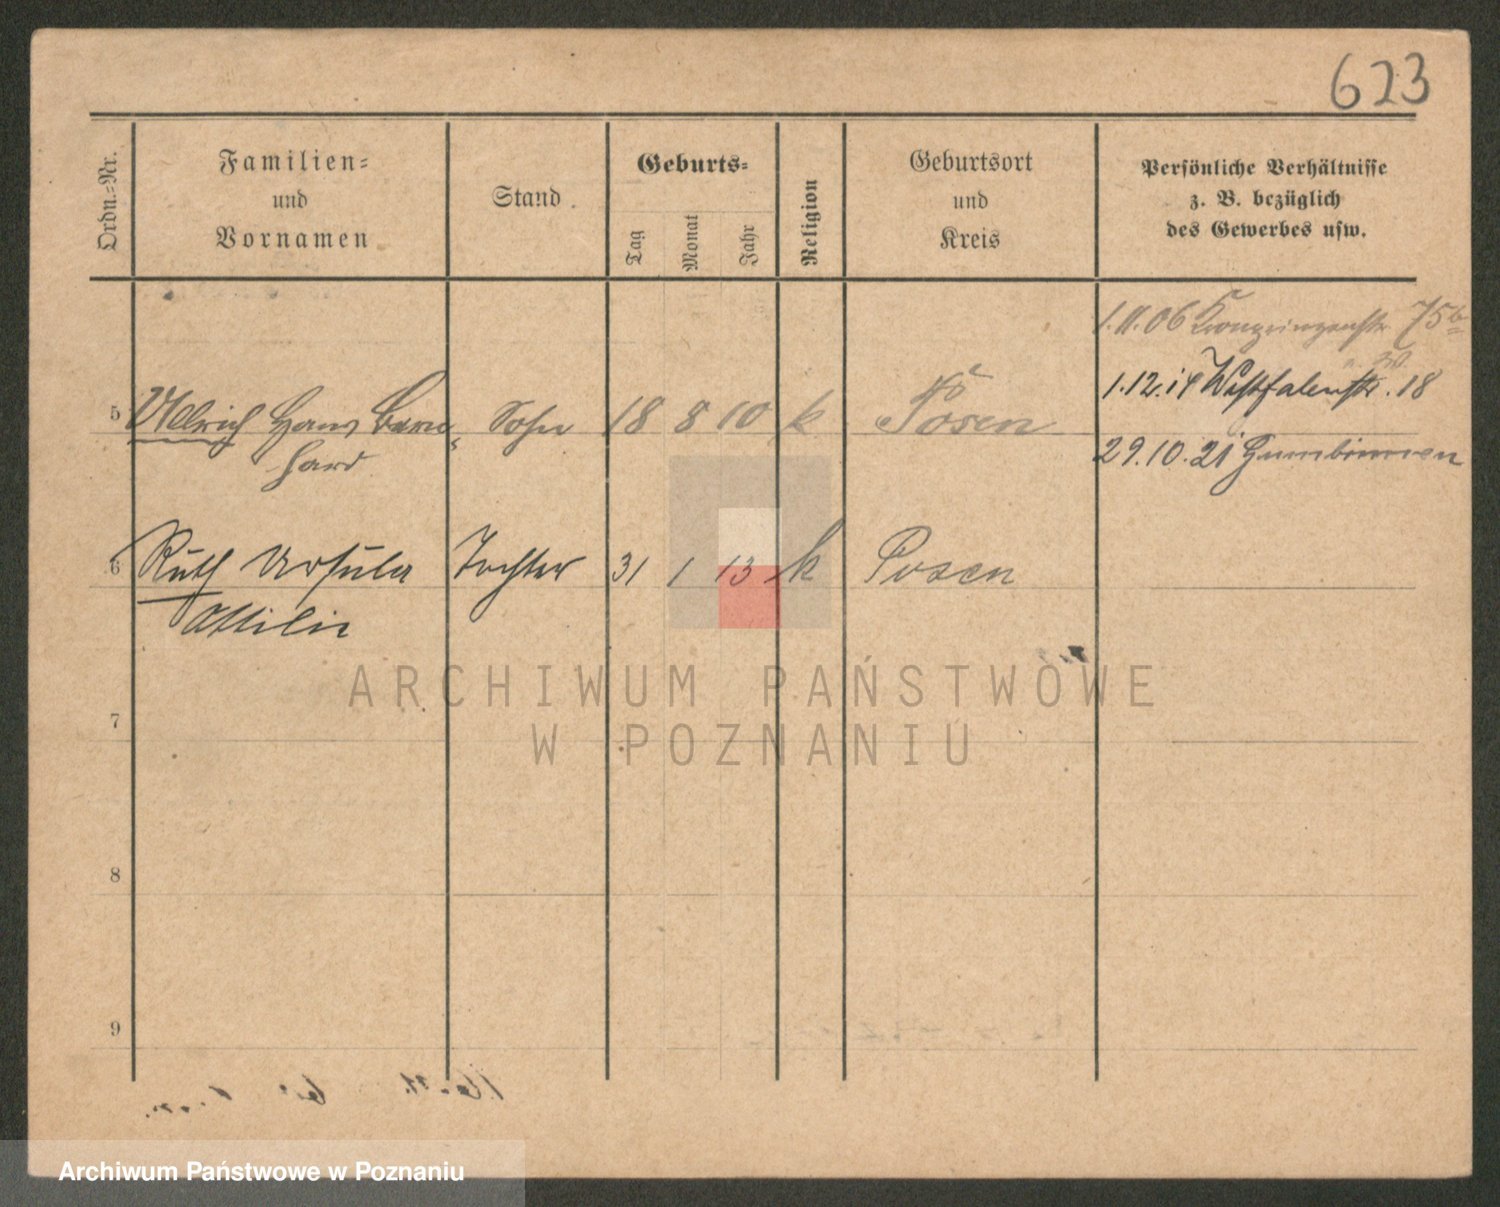 623
Ordn.=Nr.
Familien=
und
Vornamen
Stand
Geburts=
Tag
Monat
Jahr
Religion
Geburtsort
und
Kreis
Persönliche Verhältnisse
z. B. bezüglich
des Gewerbes usw.
1.11.06 Kronprinzenstr 75b
1.12.14 Westfalenstr. 18
5 Ullrich Hans Bern- Sohn 18 8 10 k Posen
hard
29.10.21 Gumbinnen
6 Ruth Ursula Tochter 31 1 13 k Posen
Ottilie
ARCHIWUM PAŃSTWOWE
W POZNANIU
7
8
9
Archiwum Państwowe w Poznaniu